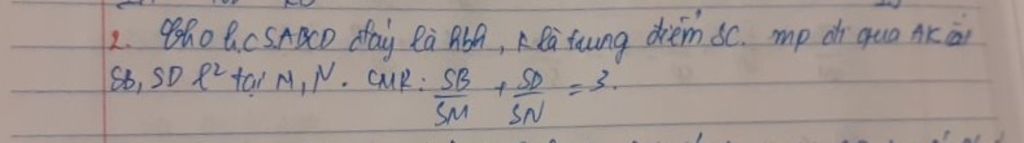 2. Cho h.c SABCD đáy là hbh, K là trung điểm SC. mp đi qua AK cắt
SB, SD l² tại M, N. CMR: SB/SM + SD/SN = 3.